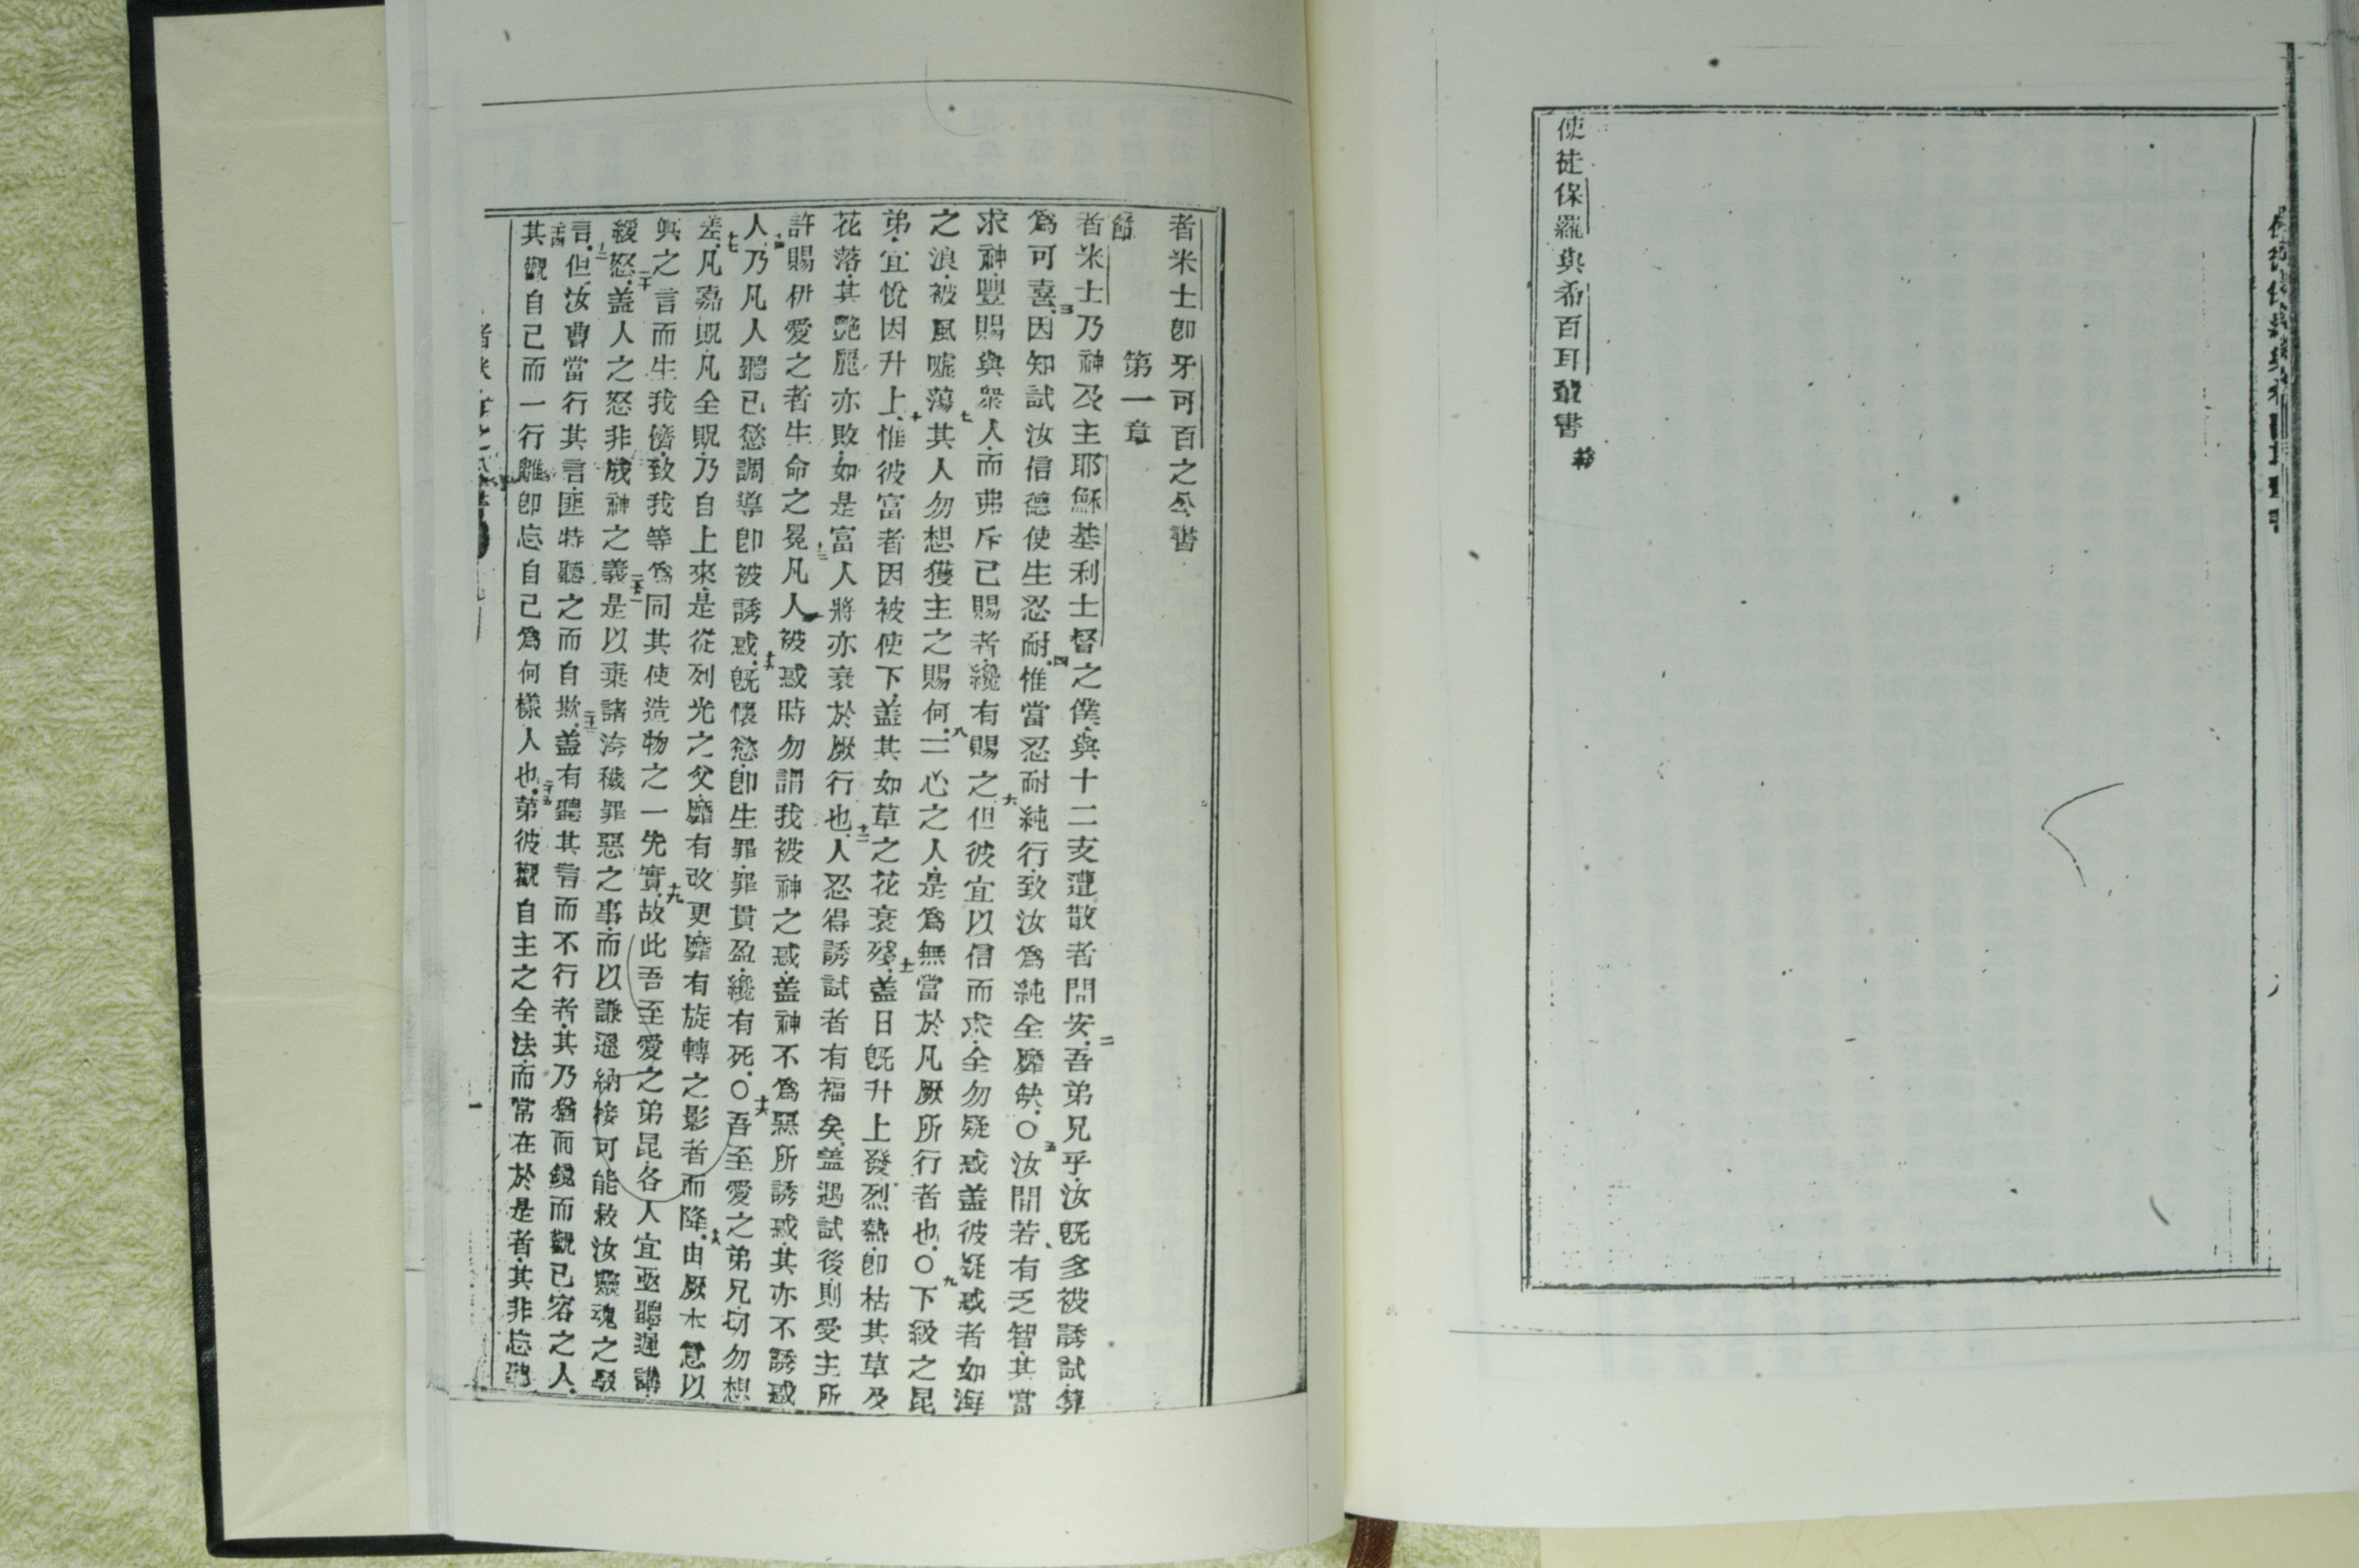 使徒保羅與希百耳輩書 終
者米士卽牙可百之公書
第一章
節
者米士乃神及主耶穌基利士督之僕與十二支遭散者問安二吾弟兄乎汝旣多被誘試算
爲可喜三因知試汝信德使生忍耐四惟當忍耐純行致汝爲純全靡缺〇五汝間若有乏智其當
求神豐賜與衆人而弗斥己賜者纔有賜之六但彼宜以信而求全勿疑惑蓋彼疑惑者如海
之浪被風噓蕩七其人勿想獲主之賜何八二心之人是爲無當於凡厥所行者也〇九下級之昆
弟宜悅因升上十惟彼富者因被使下蓋其如草之花衰殘十一蓋日旣升上發烈熱卽枯其草及
花落其艷麗亦敗如是富人將亦衰於厥行也十二人忍得誘試者有福矣蓋遇試後則受主所
許賜伊愛之者生命之冕十三凡人被惑時勿謂我被神之惑蓋神不爲惡所誘惑其亦不誘惑
人十四乃凡人聽己慾調導卽被誘惑十五旣懷慾卽生罪罪貫盈纔有死〇十六吾至愛之弟兄切勿想
差十七凡嘉貺凡全貺乃自上來是從列光之父靡有改更靡有旋轉之影者而降十八由厥本意以
眞之言而生我儕致我等爲同其使造物之一先實十九故此吾至愛之弟昆各人宜亟聽遲講
緩怒二十蓋人之怒非成神之義二十一是以棄諸洿穢罪惡之事而以謙遜納接可能救汝靈魂之
言二十二但汝曹當行其言匪特聽之而自欺二十三蓋有聽其言而不行者其乃猶面鏡而觀己容之人
二十四其觀自己而一行離卽忘自己爲何樣人也二十五第彼觀自主之全法而常在於是者其非忘聽
者米士之公書
一